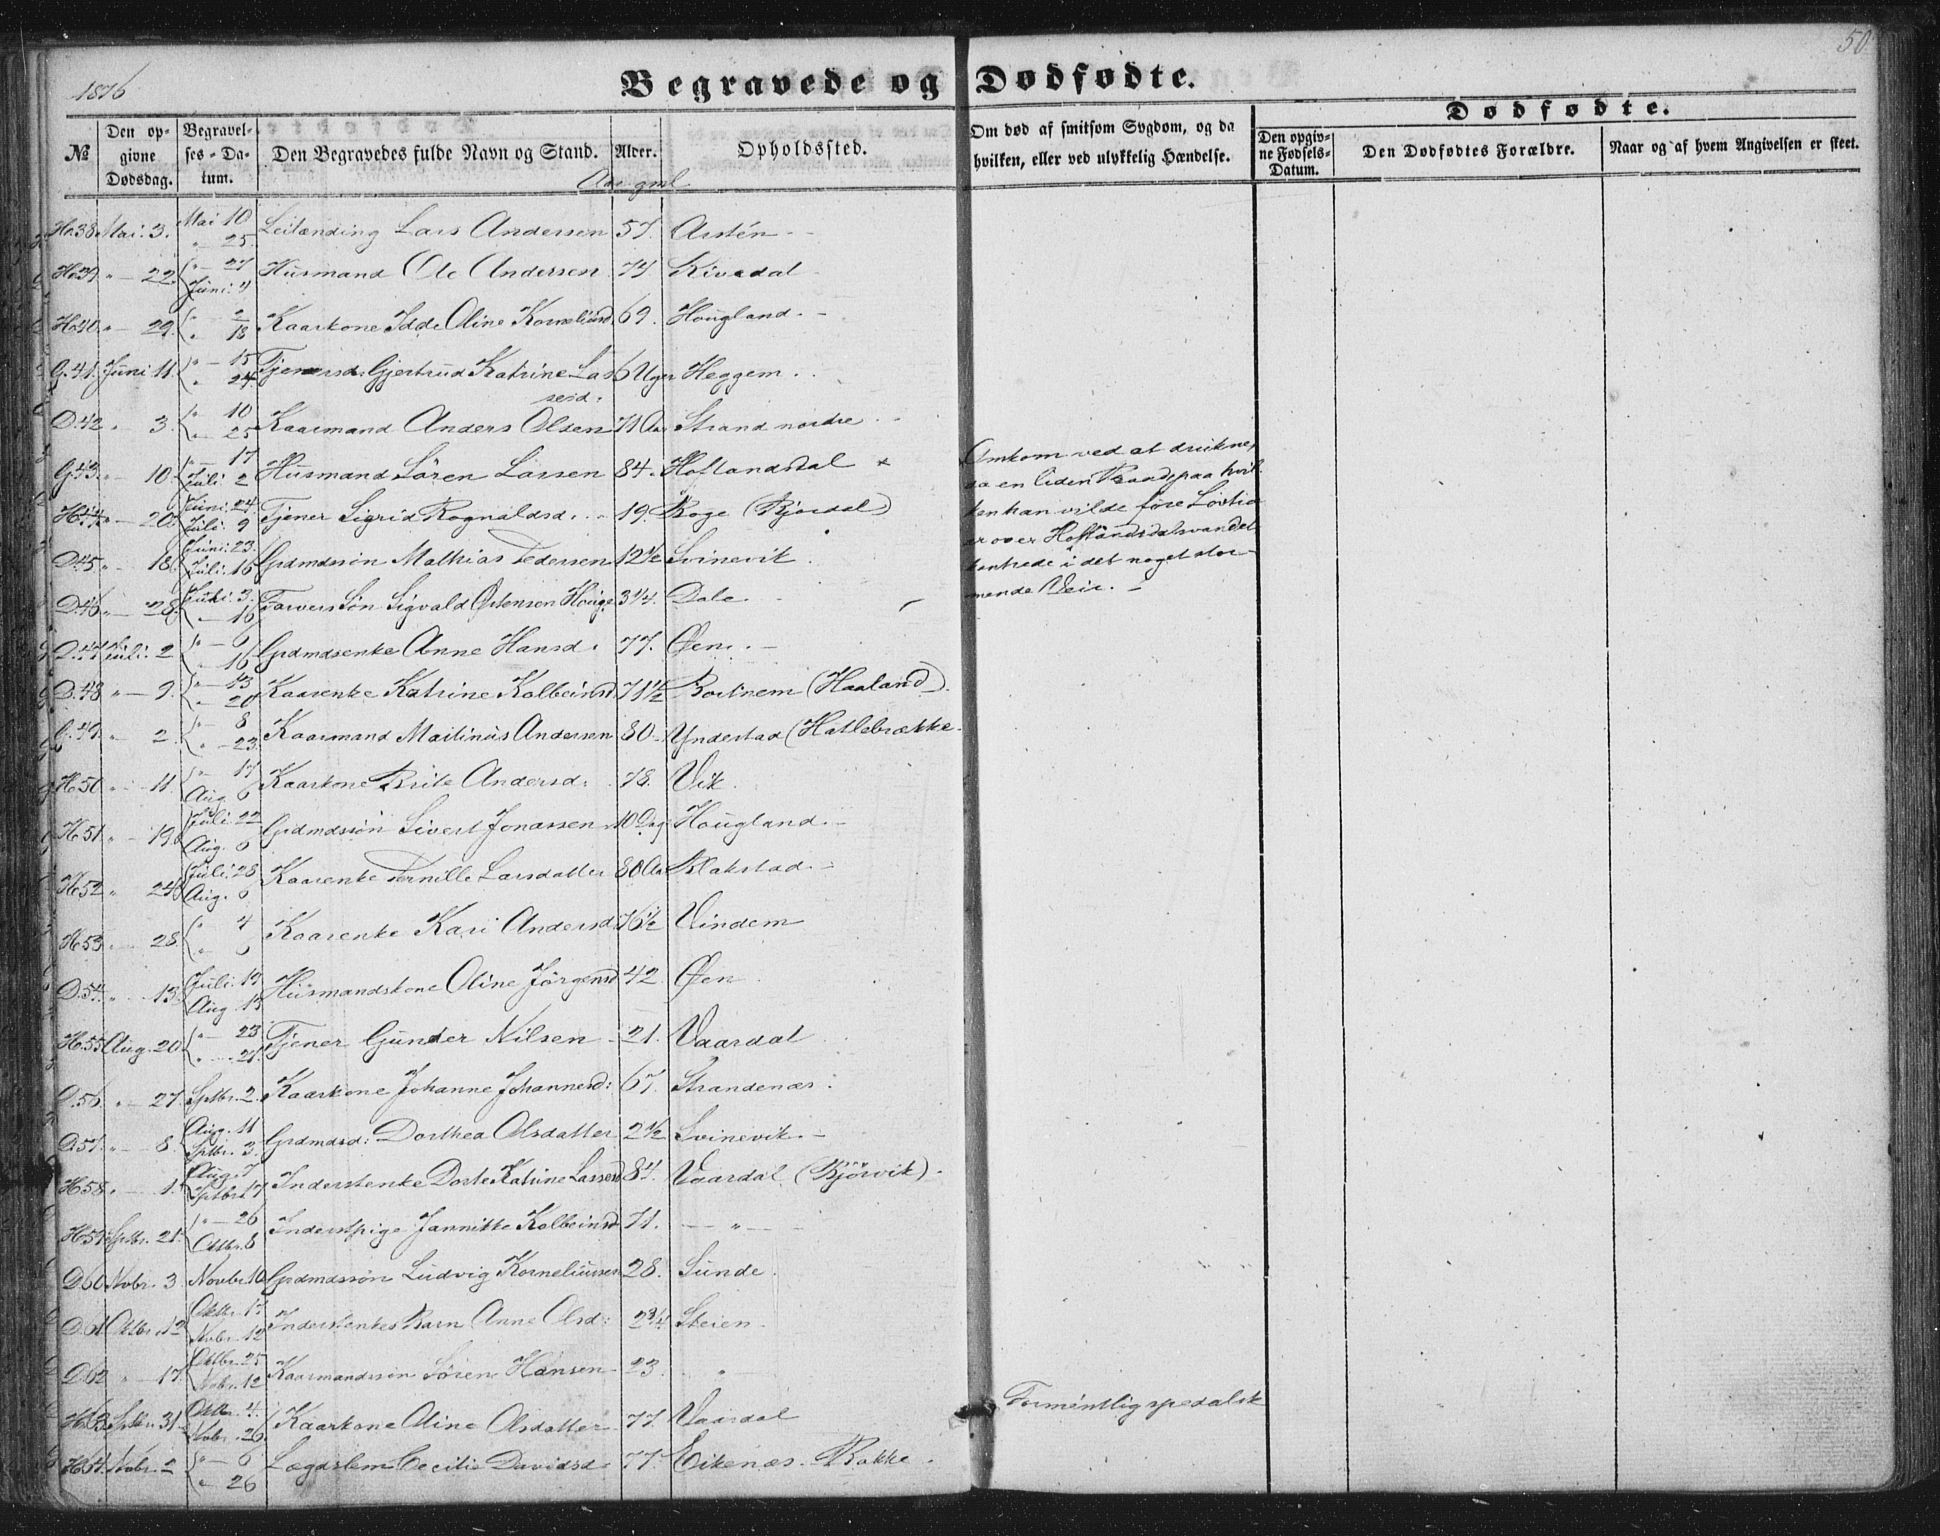 1876
50
Begravede og Dødfødte.
Dødfødte.
№
Den opgivne Dødsdag.
Begravelses-Datum.
Den Begravedes fulde Navn og Stand.
Alder.
Opholdssted.
Om død af smitsom Sygdom, og da hvilken, eller ved ulykkelig Hændelse.
Den opgivne Fødsels-Datum.
Den Dødfødtes Forældre.
Naar og af hvem Angivelsen er skeet.
Aar gml
H.38. Mai. 3. Mai 10 " 25. Leilænding Lars Andersen 57. Arstén
H.39 " 22. " 27 Juni. 4 Husmand Ole Andersen 74 Kivedal
H.40. " 29. " 2 " 18 Kaarkone Idde Oline Korneliusd. 69. Hougland.
G.41. Juni 11. " 15 " 24. Tjenersd. Gjertrud Katrine Las sesd. 6 Uger Heggem.
D.42 " 3. " 10 " 25 Kaarmand Anders Olsen 71 Aar Strand nordre
G.43. " 10. " 17 Juli 2 Husmand Sören Larsen 84. Hoflandsdal ×
H.44 " 20. Juni. 24. Juli. 9 Tjener Sigrid Rognaldsd. 19. Boge (Bjordal)
D.45 " 18. Juni. 23. Juli. 16 Grdmdssön Mathias Pedersen 12 1/2 Svinevik.
D.46 " 28. Juli. 3. " 16 Farvers Sön Sigvald Østensen Houge 3 1/4. Dale
D.47 Juli. 2 " 6 " 16 Grdmdsenke Anne Hansd. 77. Øen.
D.48 " 9. " 13 " 20 Kaarenke Katrine Kolbeinsd. 71 1/2 Bortnem (Haaland).
G.49. " 2. " 8 " 23. Kaarmand Martinus Andersen 80. Yndestad (Hatlebrække
H.50 " 11. " 17 Aug. 6 Kaarkone Brite Andersd. 78. Vik.
H.51 " 19. Juli. 22 Aug. 6 Grdmdssön Sivert Jonassen 10 Dag. Hougland.
H.52 " 24. Juli. 28 Aug. 6 Kaarenke Pernille Larsdatter 80 Aar Blakstad.
H.53 " 28. " 4 " 6 Kaarenke Kari Andersd. 76 1/2 Vindem
D.54. " 13. Juli. 19 Aug. 13 Husmandskone Oline Jörgensd. 42 Øen
H.55 Aug. 20. " 23 " 27. Tjener Gunder Nilsen 21. Vaardal
D.56. " 27. Sptbr. 2. Kaarkone Johanne Johannesd: 67. Strandenæs.
D.57. " 8. Aug. 11 Sptbr. 3. Grdmdsd: Dorthea Olsdatter 2 1/2 Svinevik.
H.58 " 1. Aug. 7 Sptbr. 17 Inderstenke Dorte Katrine Lassesd. 84. Vaardal (Bjørvik).
H.59 Sptbr. 21. " 26 Oktbr. 8 Inderstpige Jannikke Kolbeinsd. 71. "
D.60 Nvbr. 3 Novbr. 10 Grdmdssön Ludvig Korneliussen 28. Sunde.
D.61 Oktbr. 12 Oktbr. 17 Nvbr. 12 Inderstenkes Barn Anne Olsd: 2 3/4. Steien.
D.62 " 17. Oktbr. 25 Nvbr. 12 Kaarmandssön Sören Hansen 23. "
H.63 Sptbr. 31. Oktbr. 4. Nvbr. 26 Kaarkone Oline Olsdatter 77. Vaardal
H.64. Nvbr. 2 " 6 " 26 Lægdslem Cecilie Davidsd. 77. Eikenæs Bakke.
Omkom ved at drukne,
da en liden Baad paa hvil
ken han vilde føre Løvtin
er over Hoflandsdalsvandet
kantrede i det noget stor
mende Veir.
Formentlig spedalsk